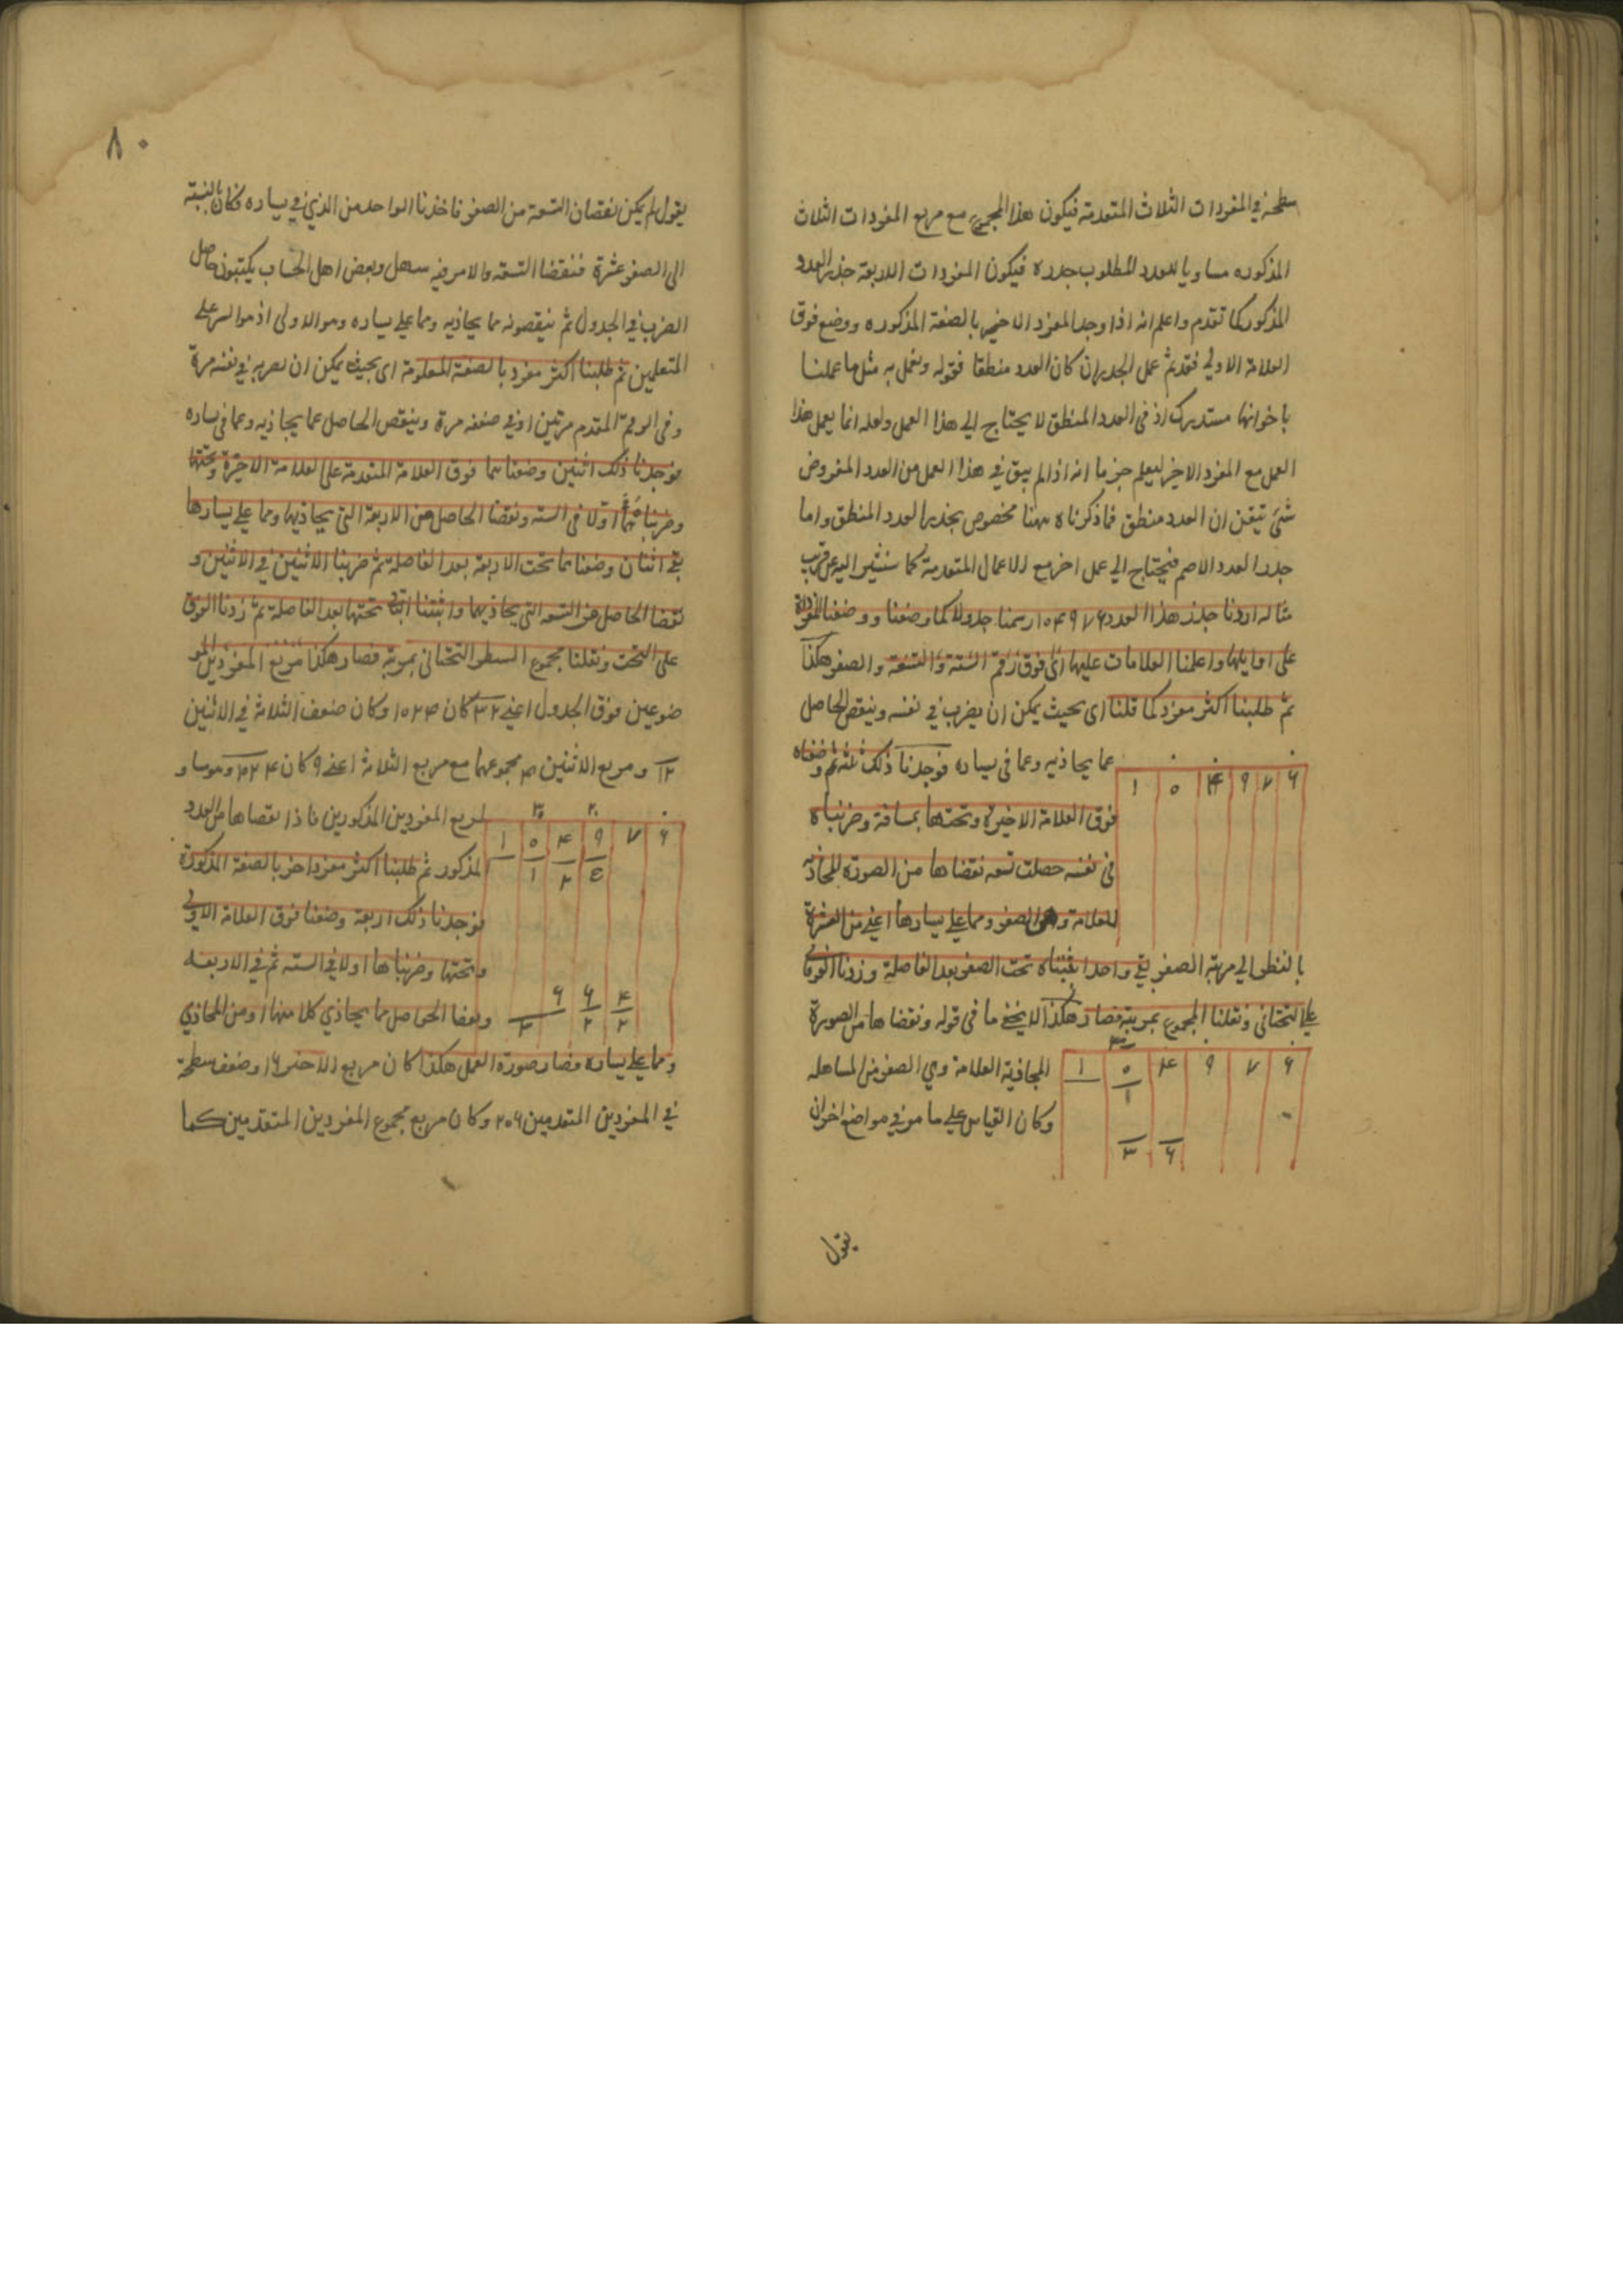 سطحه في المفردات الثلاث المتقدمة فيكون هذا المجموع مع مربع المفردات الثلاث
المذكوره مساويا للعدد المطلوب جذره فيكون المفردات الاربعة جذر العدد
المذكور كما تقدم واعلم انه اذا وجد المفرد الاخير بالصفة المذكوره ووضع فوق
العلامة الاولي فقد تم عمل الجذر ان كان العدد منطقا فقوله ونعمل به مثل ما عملنا
باخواتها مستدرك اذ في العدد المنطق لا يحتاج الي هذا العمل ولعله انما يعمل هذا
العمل مع المفرد الاخير ليعلم جزما انه اذا لم يبق في هذا العمل من العدد المفروض
شئ تيقن ان العدد منطق فما ذكرناه ههنا مخصوص بجذر العدد المنطق واما
جذر العدد الاصم فيحتاج الي عمل اخر مع الاعمال المتقدمة كما سنشير اليه عن قريب
مثاله اردنا جذر هذا العدد ١٠۴٩٧۶ رسمنا جدولا كما وصفنا ووضعنا المفردات
على اوايلها واعلمنا العلامات عليها اى فوق رقم الستة والتسعة والصفر هكذا
ثم طلبنا اكثر مفرد كما قلنا اى بحيث يمكن ان يضرب في نفسه وينقص الحاصل
عما يحاذيه وعما في يساره فوجدنا ذلك ثلثة ثم وضعناه
١ ٠ ۴ ٩ ٧ ۶
فوق العلامة الاخيرة وتحتها بمسافة وضربناه
في نفسه حصلت تسعة نقصناها من الصورة المحاذيه
للعلامة وهي الصفر ومما علي يسارها اعني من العشرة
بالنظر الي مرتبة الصفر بقي واحد اثبتناه تحت الصفر بعد الفاصلة وزدنا الفوقاني
علي التحتاني ونقلنا المجموع بمرتبة فصار هكذا لا يخفي ما في قوله ونقصناها من الصورة
المحاذية العلامة وهي الصفر من المساهله
١ ٠ ۴ ٩ ٧ ۶
وكان القياس علي ما مر في مواضع اخر ان
يقول
٨٠
يقول لم يكن نقصان التسعة من الصفر فاخذنا الواحد من الذي في يساره فكان بالنسبة
الى الصفر عشرة فنقصنا التسعة والامر فيه سهل وبعض اهل الحساب يكتبون حاصل
الضرب في الجدول ثم ينقصونه مما يحاذيه ومما علي يساره وهو الاولى اذ هو اسهل على
المتعلمين ثم طلبنا اكثر مفرد بالصفة المعلومة اى بحيث يمكن ان نضربه في نفسه مرة
وفى الرقم المتقدم مرتين او في ضعفه مرة وينقص الحاصل عما يحاذيه وعما في يساره
فوجدنا ذلك اثنين وضعناهما فوق العلامة المتقدمة على العلامة الاخيرة وتحتها
وضربناهما اولا في الستة ونقصنا الحاصل من الاربعة التى يحاذيها ومما علي يسارها
بقي اثنان وضعناهما تحت الاربعة بعد الفاصلة ثم ضربنا الاثنين في الاثنين و
نقصنا الحاصل من التسعه التى يحاذيهما واثبتنا الباقي تحتها بعد الفاصلة ثم زدنا الفوق
على التحت ونقلنا مجموع السطر التحتاني بمرتبة فصار هكذا مربع المفردين المو
ضوعين فوق الجدول اعني ٣٢ كان ١٠٢۴ وكان ضعف الثلاثة في الاثنين
١٢ ومربع الاثنين ۴ مجموعهما مع مربع الثلاثة اعني ٩ كان وهو مساو
لمربع المفردين المذكورين فاذا نقصناها من العدد
١ ٠ ۴ ٩ ٧ ۶
المذكور ثم طلبنا اكثر مفرد اخر بالصفة المذكورة
فوجدنا ذلك اربعة وضعنا فوق العلامة الاولي
وتحتها وضربناها اولا في الستة ثم في الاربعة
ونقصنا الحواصل مما يحاذي كلا منها او من المحاذي
ومما علي يساره فصار صورة العمل هكذا كان مربع الاخير ١۶ وضعف سطحه
في المفردين المتقدمين ٢٥۶ وكان مربع مجموع المفردين المتقدمين كما